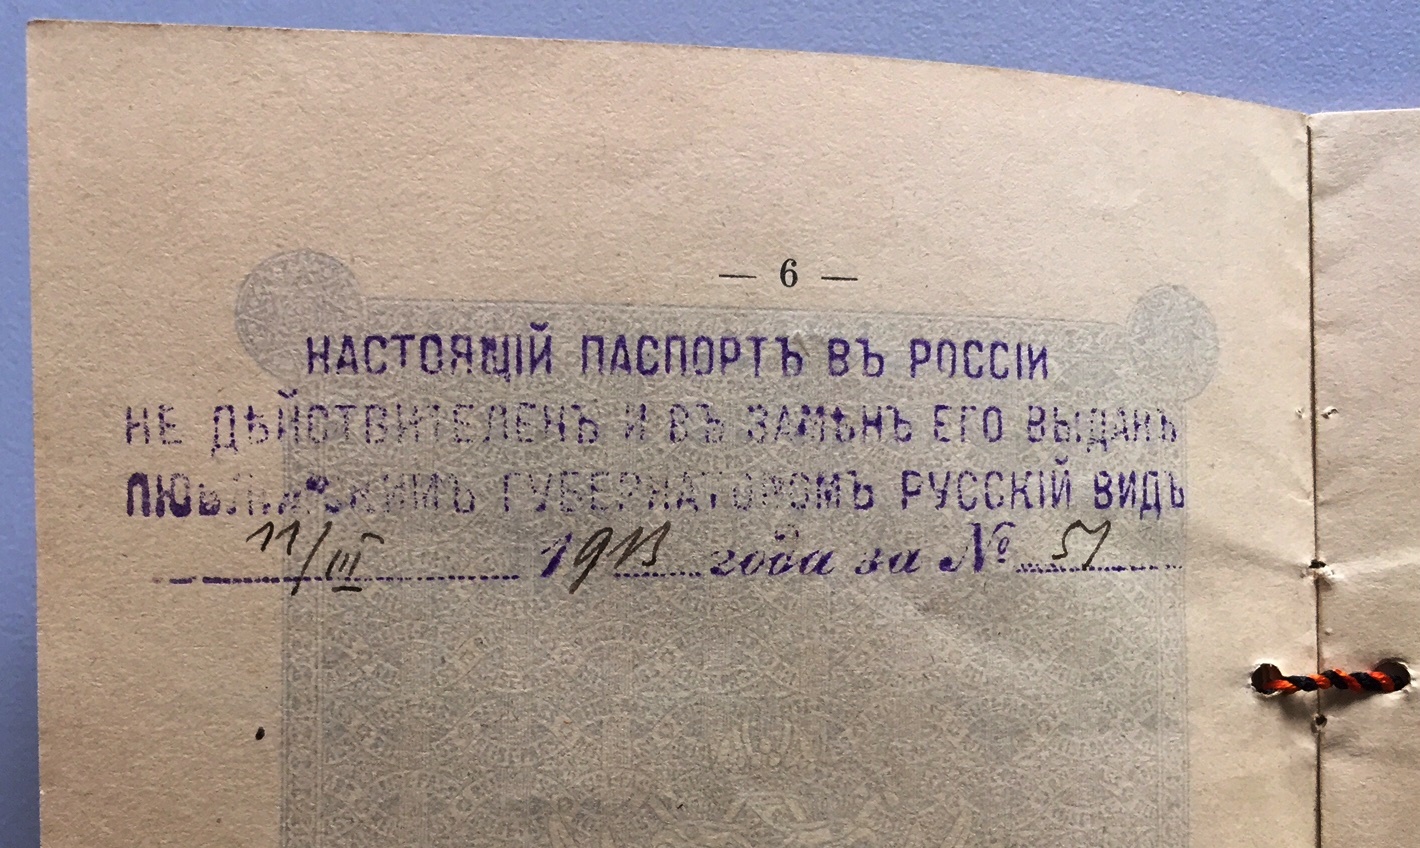 — 6 —
НАСТОЯЩІЙ ПАСПОРТЪ ВЪ РОССІИ
НЕ ДѢЙСТВИТЕЛЕНЪ И ВЪ ЗАМѢНЪ ЕГО ВЫДАНЪ
ЛЮБЛИНСКИМЪ ГУБЕРНАТОРОМЪ РУССКІЙ ВИДЪ
11/III 1913 года за № 51